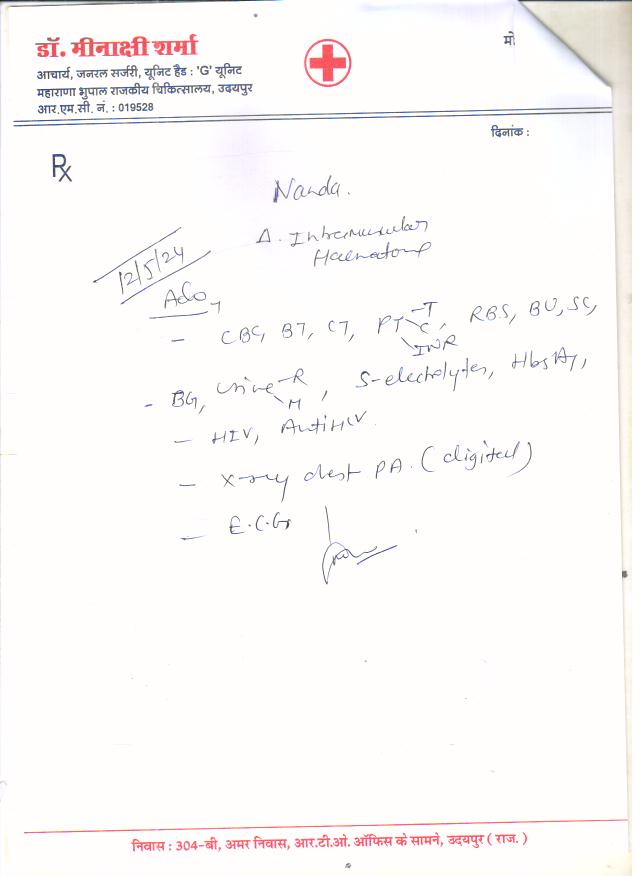 डॉ. मीनाक्षी शर्मा
आचार्य, जनरल सर्जरी, यूनिट हैड : 'G' यूनिट
महाराणा भुपाल राजकीय चिकित्सालय, उदयपुर
आर.एम.सी. नं. : 019528
मो
दिनांक :
Rx
Nanda.
Δ. Intramuscular
Haematoma
12/5/24
Adv
- CBC, BT, CT, PT -T C INR, RBS, BU, SC,
- BG, Urine -R M, S-electrolytes, HbsAg,
- HIV, AntiHCV
- X-ray chest PA. (digital)
- E.C.G
निवास : 304-बी, अमर निवास, आर.टी.ओ. ऑफिस के सामने, उदयपुर ( राज. )